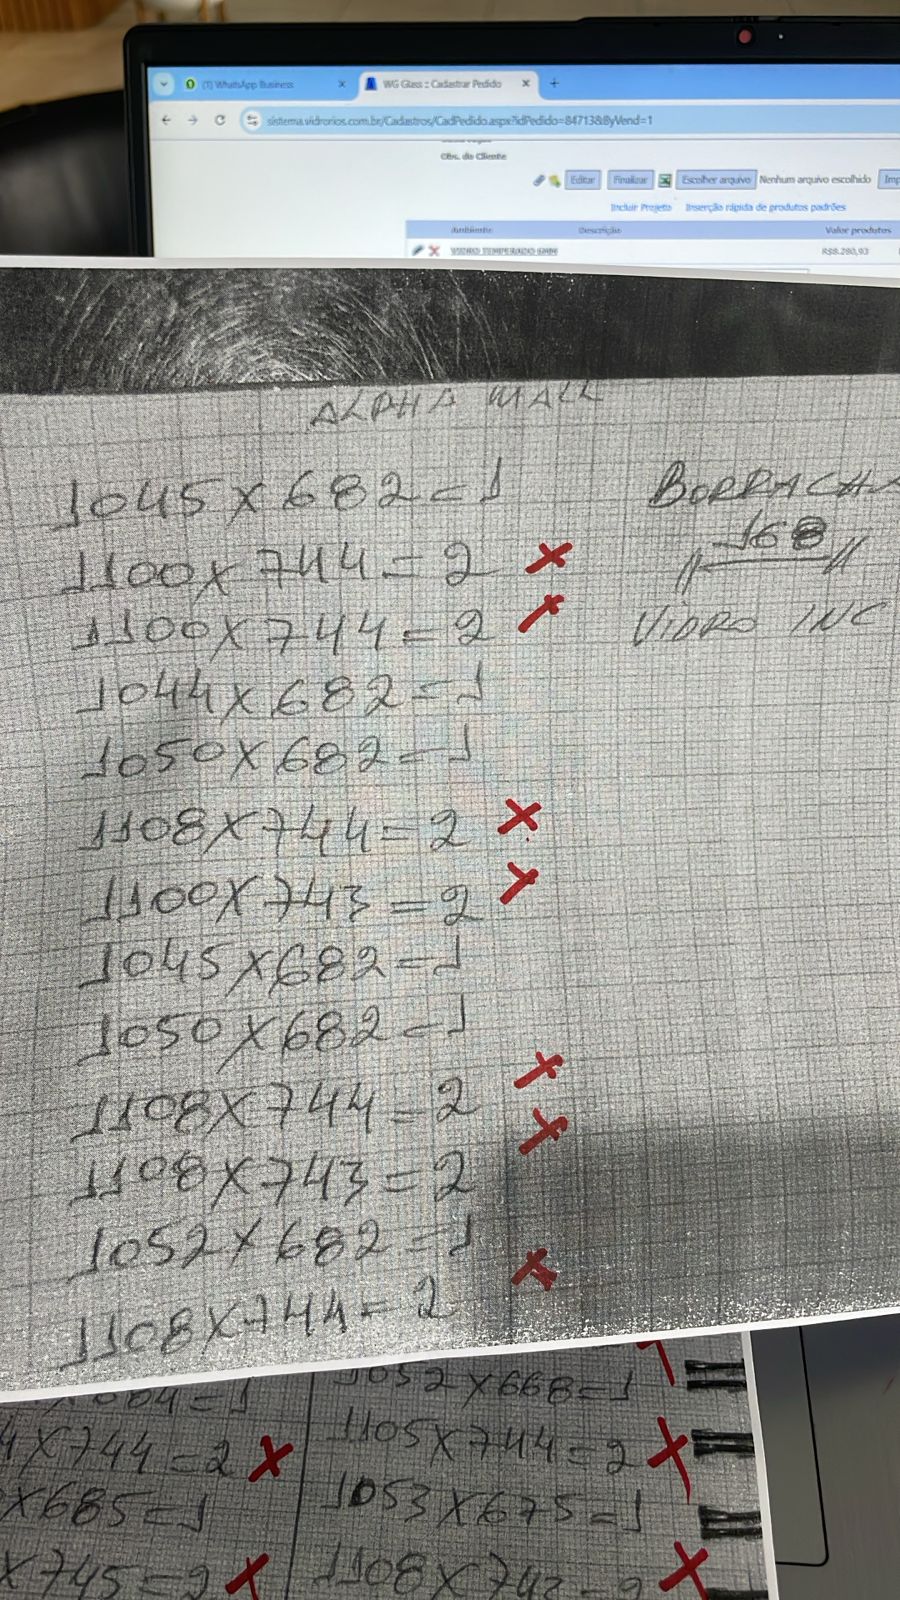 (1) WhatsApp Business
WG Glass :: Cadastrar Pedido
sistema.vidrorios.com.br/Cadastros/CadPedido.aspx?idPedido=84713&ByVend=1
Obs. do Cliente
Editar Finalizar Escolher arquivo Nenhum arquivo escolhido Imp
Incluir Projeto Inserção rápida de produtos padrões
Ambiente Descrição Valor produtos
VIDRO TEMPERADO 6MM R$8.280,93
ALPHA MALL
1045 X 682 = 1
1100 X 744 = 2 X
1100 X 744 = 2 X
1044 X 682 = 1
1050 X 682 = 1
1108 X 744 = 2 X
1100 X 743 = 2 X
1045 X 682 = 1
1050 X 682 = 1
1108 X 744 = 2 X
1108 X 743 = 2 X
1052 X 682 = 1
1108 X 744 = 2 X
BORRACHA
168
VIDRO INC
X 684 = 1
4 X 744 = 2 X
0 X 685 = 1
X 745 = 2 X
1052 X 668 = 1
1105 X 744 = 2 X
1053 X 675 = 1
1108 X 742 = 2 X